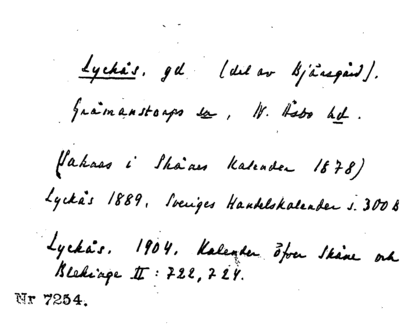 Lyckås, gd (del av Bjärsgård).
Gråmanstorps sn, N. Åsbo hd.
(Saknas i Skånes Kalender 1878)
Lyckås 1889. Sveriges Handelskalender s. 300 B
Lyckås. 1904. Kalender öfver Skåne och
Blekinge II: 722, 724.
Nr 7254.